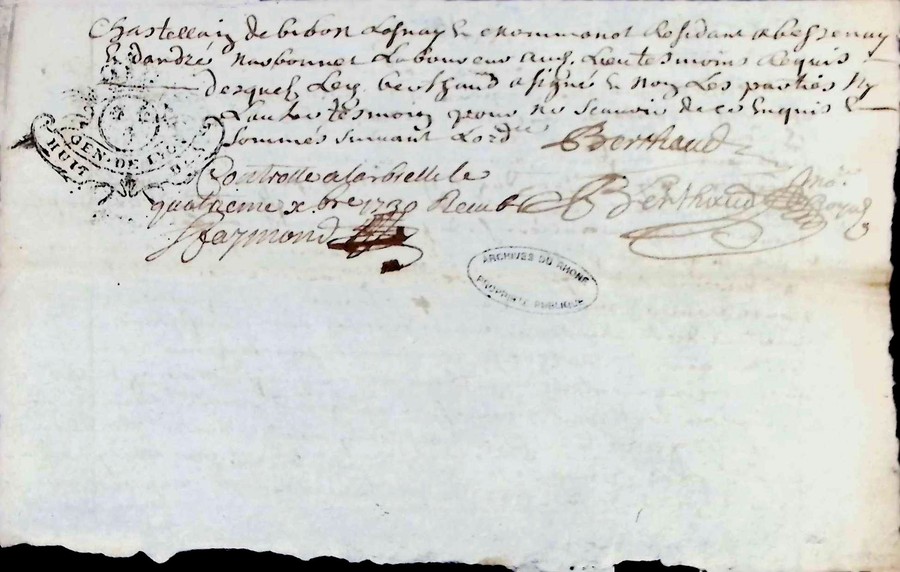 Chastellain de bibost Lesnay & nommanot Residant a bessenay
& dandré Narbonnet Laboureur aud. Lieu tesmoins Requis
Desquels Ley berthaud a signé & Non Les parties Ny
Lautre tesmoin pour ne scauoir de ce Enquis &
Sommés suivant Lord.ce Berthaud
Controlle a larbresle le
quatrieme x.bre 1730 Receu
Berthaud No.re Royal
Raymond
GEN. DE LYON
HUIT D.
ARCHIVES DU RHÔNE
PROPRIÉTÉ PUBLIQUE